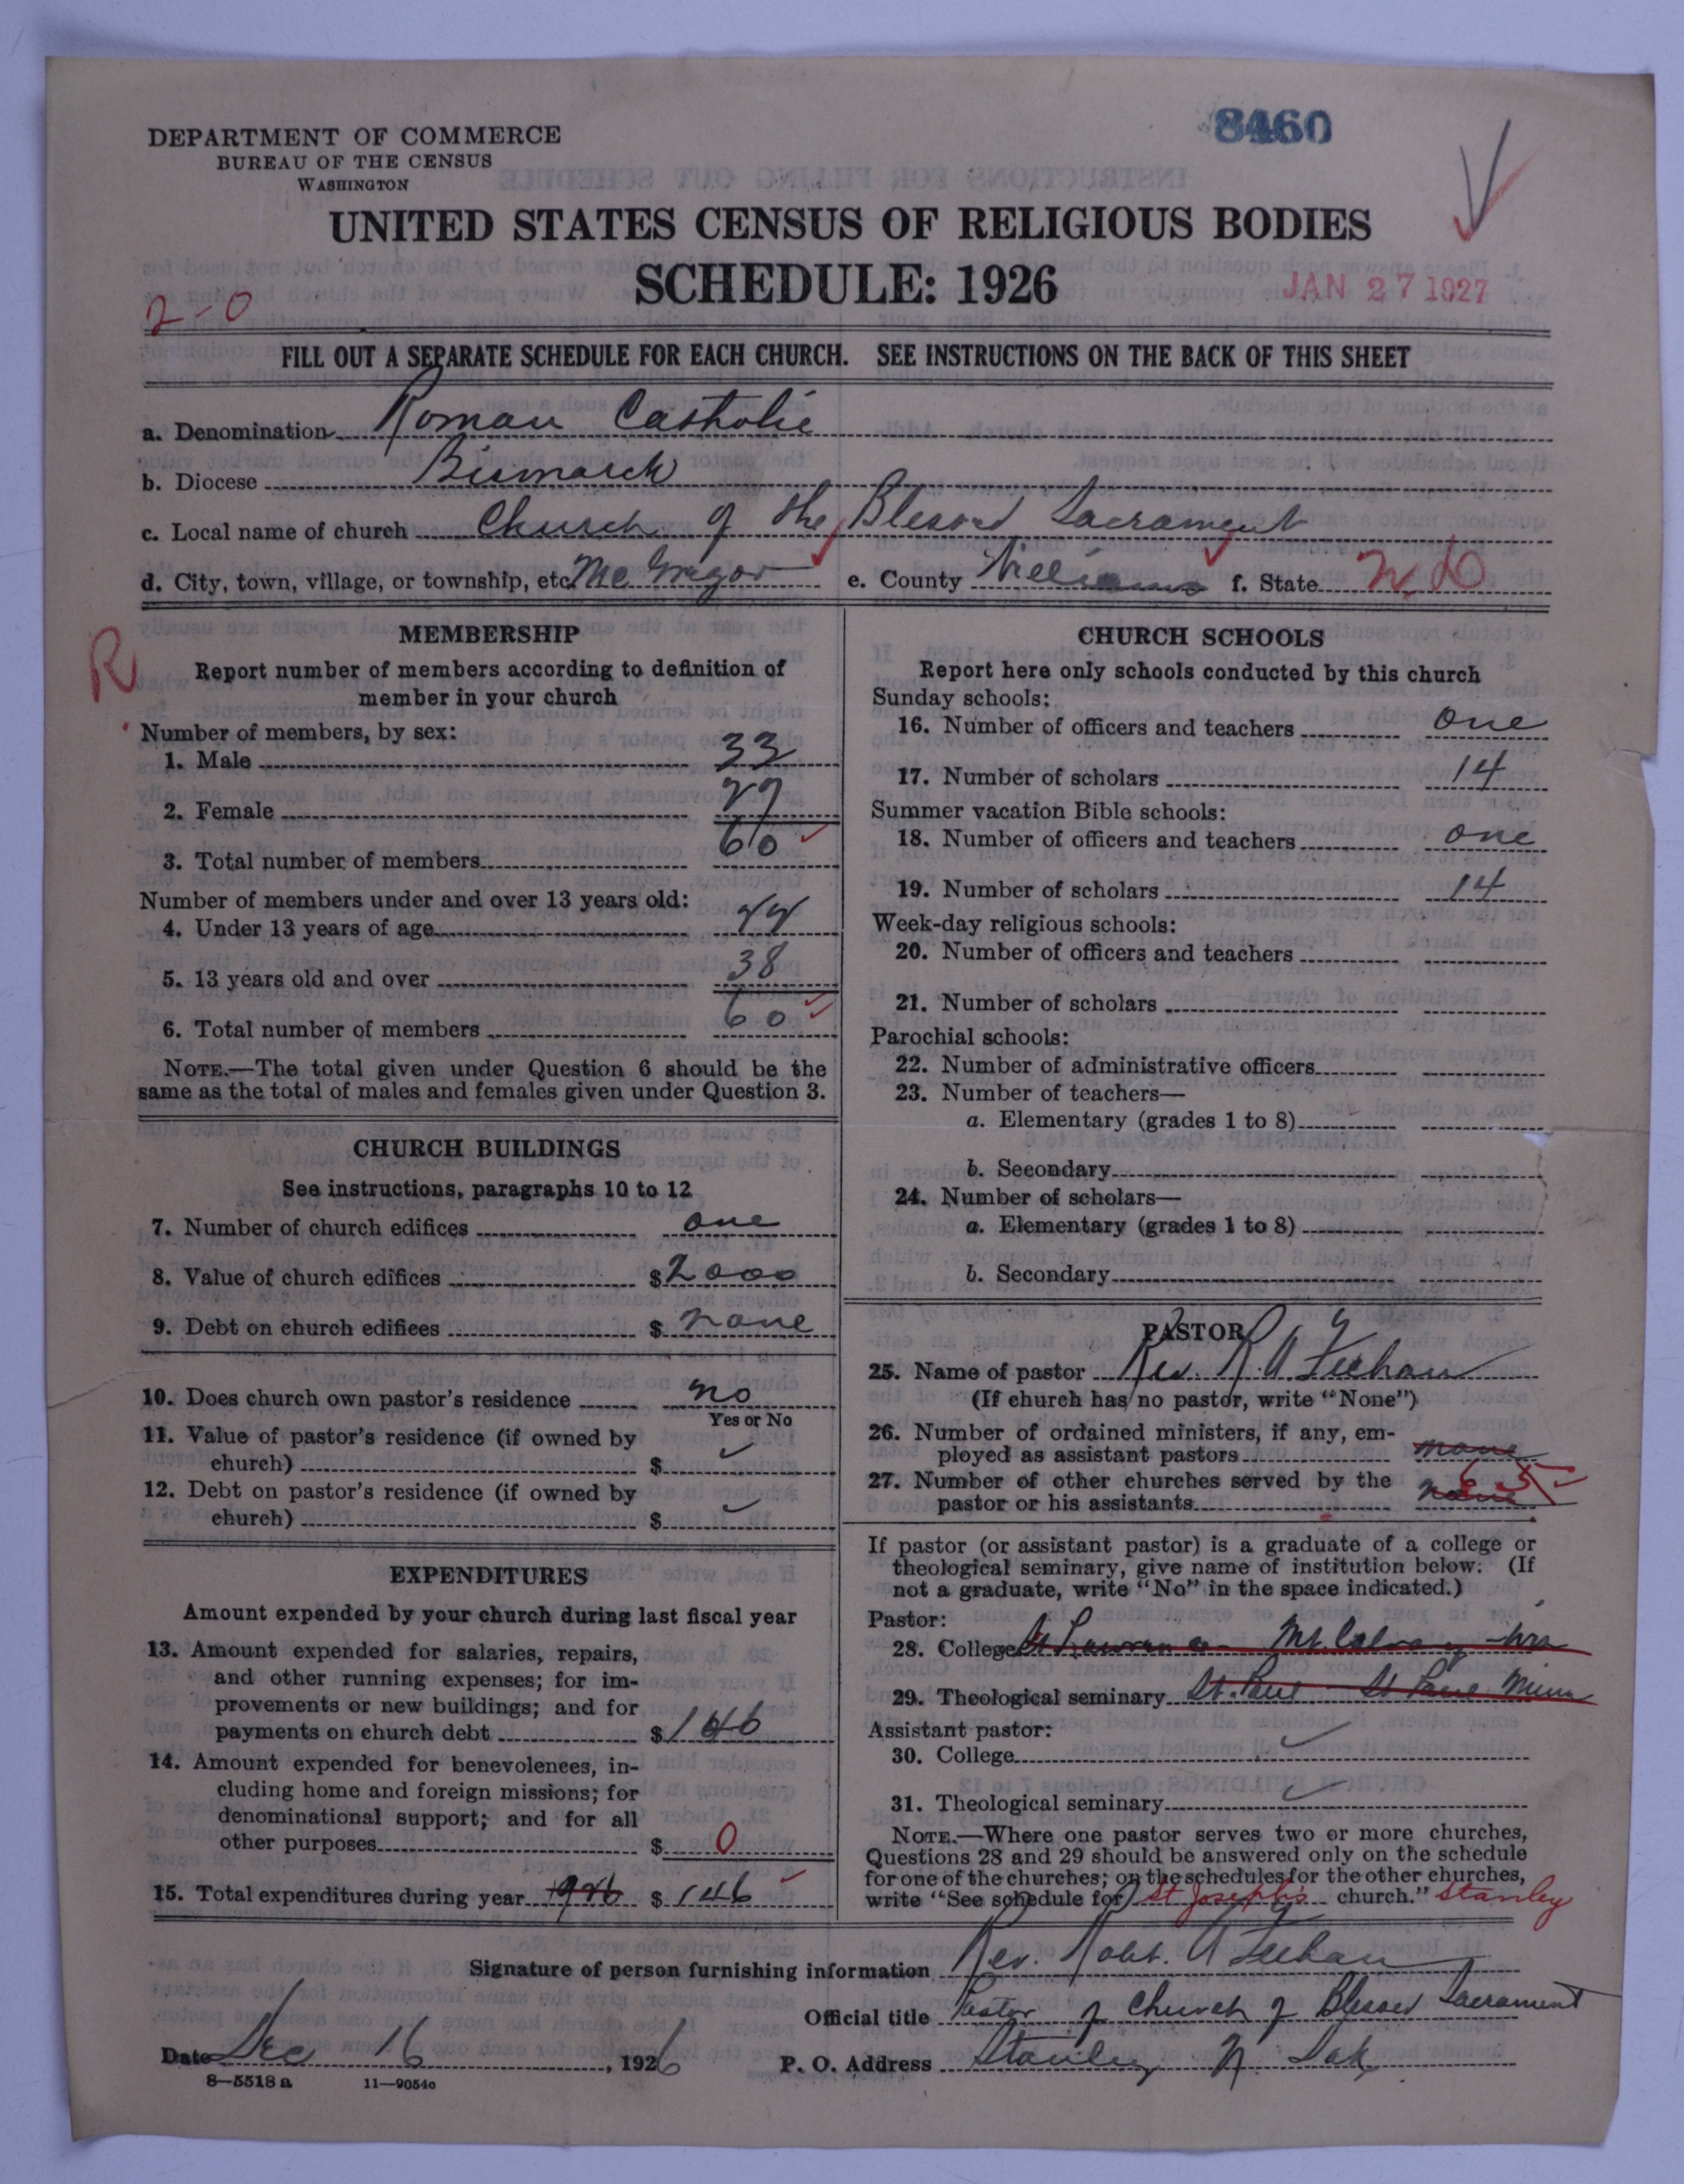 DEPARTMENT OF COMMERCE
BUREAU OF THE CENSUS
WASHINGTON
8460
UNITED STATES CENSUS OF RELIGIOUS BODIES
SCHEDULE: 1926
JAN 27 1927
2-0
FILL OUT A SEPARATE SCHEDULE FOR EACH CHURCH. SEE INSTRUCTIONS ON THE BACK OF THIS SHEET
a. Denomination Roman Catholic
b. Diocese Bismarck
c. Local name of church Church of the Blessed Sacrament
d. City, town, village, or township, etc. McGregor e. County Williams f. State N.D
R
MEMBERSHIP
Report number of members according to definition of
member in your church
Number of members, by sex:
1. Male 33
2. Female 27
3. Total number of members 60
Number of members under and over 13 years old:
4. Under 13 years of age
5. 13 years old and over 38
6. Total number of members 60
NOTE.—The total given under Question 6 should be the
same as the total of males and females given under Question 3.
CHURCH BUILDINGS
See instructions, paragraphs 10 to 12
7. Number of church edifices one
8. Value of church edifices $ 2000
9. Debt on church edifices $ none
10. Does church own pastor's residence no
Yes or No
11. Value of pastor's residence (if owned by
church) $
12. Debt on pastor's residence (if owned by
church) $
EXPENDITURES
Amount expended by your church during last fiscal year
13. Amount expended for salaries, repairs,
and other running expenses; for im-
provements or new buildings; and for
payments on church debt $ 146
14. Amount expended for benevolences, in-
cluding home and foreign missions; for
denominational support; and for all
other purposes $ 0
15. Total expenditures during year $ 146
CHURCH SCHOOLS
Report here only schools conducted by this church
Sunday schools:
16. Number of officers and teachers one
17. Number of scholars 14
Summer vacation Bible schools:
18. Number of officers and teachers one
19. Number of scholars 14
Week-day religious schools:
20. Number of officers and teachers
21. Number of scholars
Parochial schools:
22. Number of administrative officers
23. Number of teachers—
a. Elementary (grades 1 to 8)
b. Secondary
24. Number of scholars—
a. Elementary (grades 1 to 8)
b. Secondary
PASTOR
25. Name of pastor Rev. R. A Feehan
(If church has no pastor, write "None")
26. Number of ordained ministers, if any, em-
ployed as assistant pastors none
27. Number of other churches served by the
pastor or his assistants none 5
If pastor (or assistant pastor) is a graduate of a college or
theological seminary, give name of institution below: (If
not a graduate, write "No" in the space indicated.)
Pastor:
28. College St Lawrence Mt. Calvary Wis
29. Theological seminary St. Paul St Paul Minn
Assistant pastor:
30. College
31. Theological seminary
NOTE.—Where one pastor serves two or more churches,
Questions 28 and 29 should be answered only on the schedule
for one of the churches; on the schedules for the other churches,
write "See schedule for St Joseph's church." Stanley
Signature of person furnishing information Rev. Robt. A Feehan
Official title Pastor of Church of Blessed Sacrament
Date Dec 16, 1926 P. O. Address Stanley N. Dak
8—5518 a 11—9054c